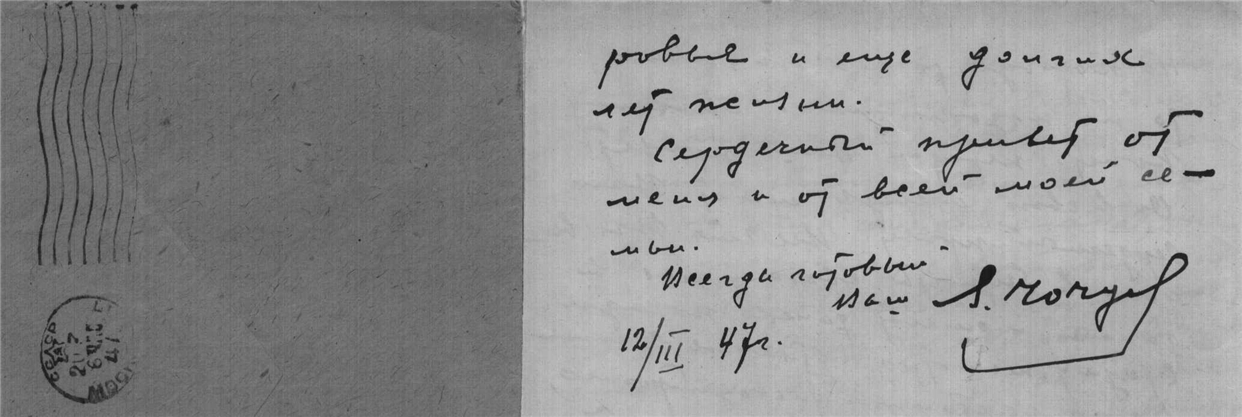 ровья и еще долгих
лет жизни.
Сердечный привет от
меня и от всей моей се-
мьи.
Всегда готовый
Ваш
12/III 47г.
СССР